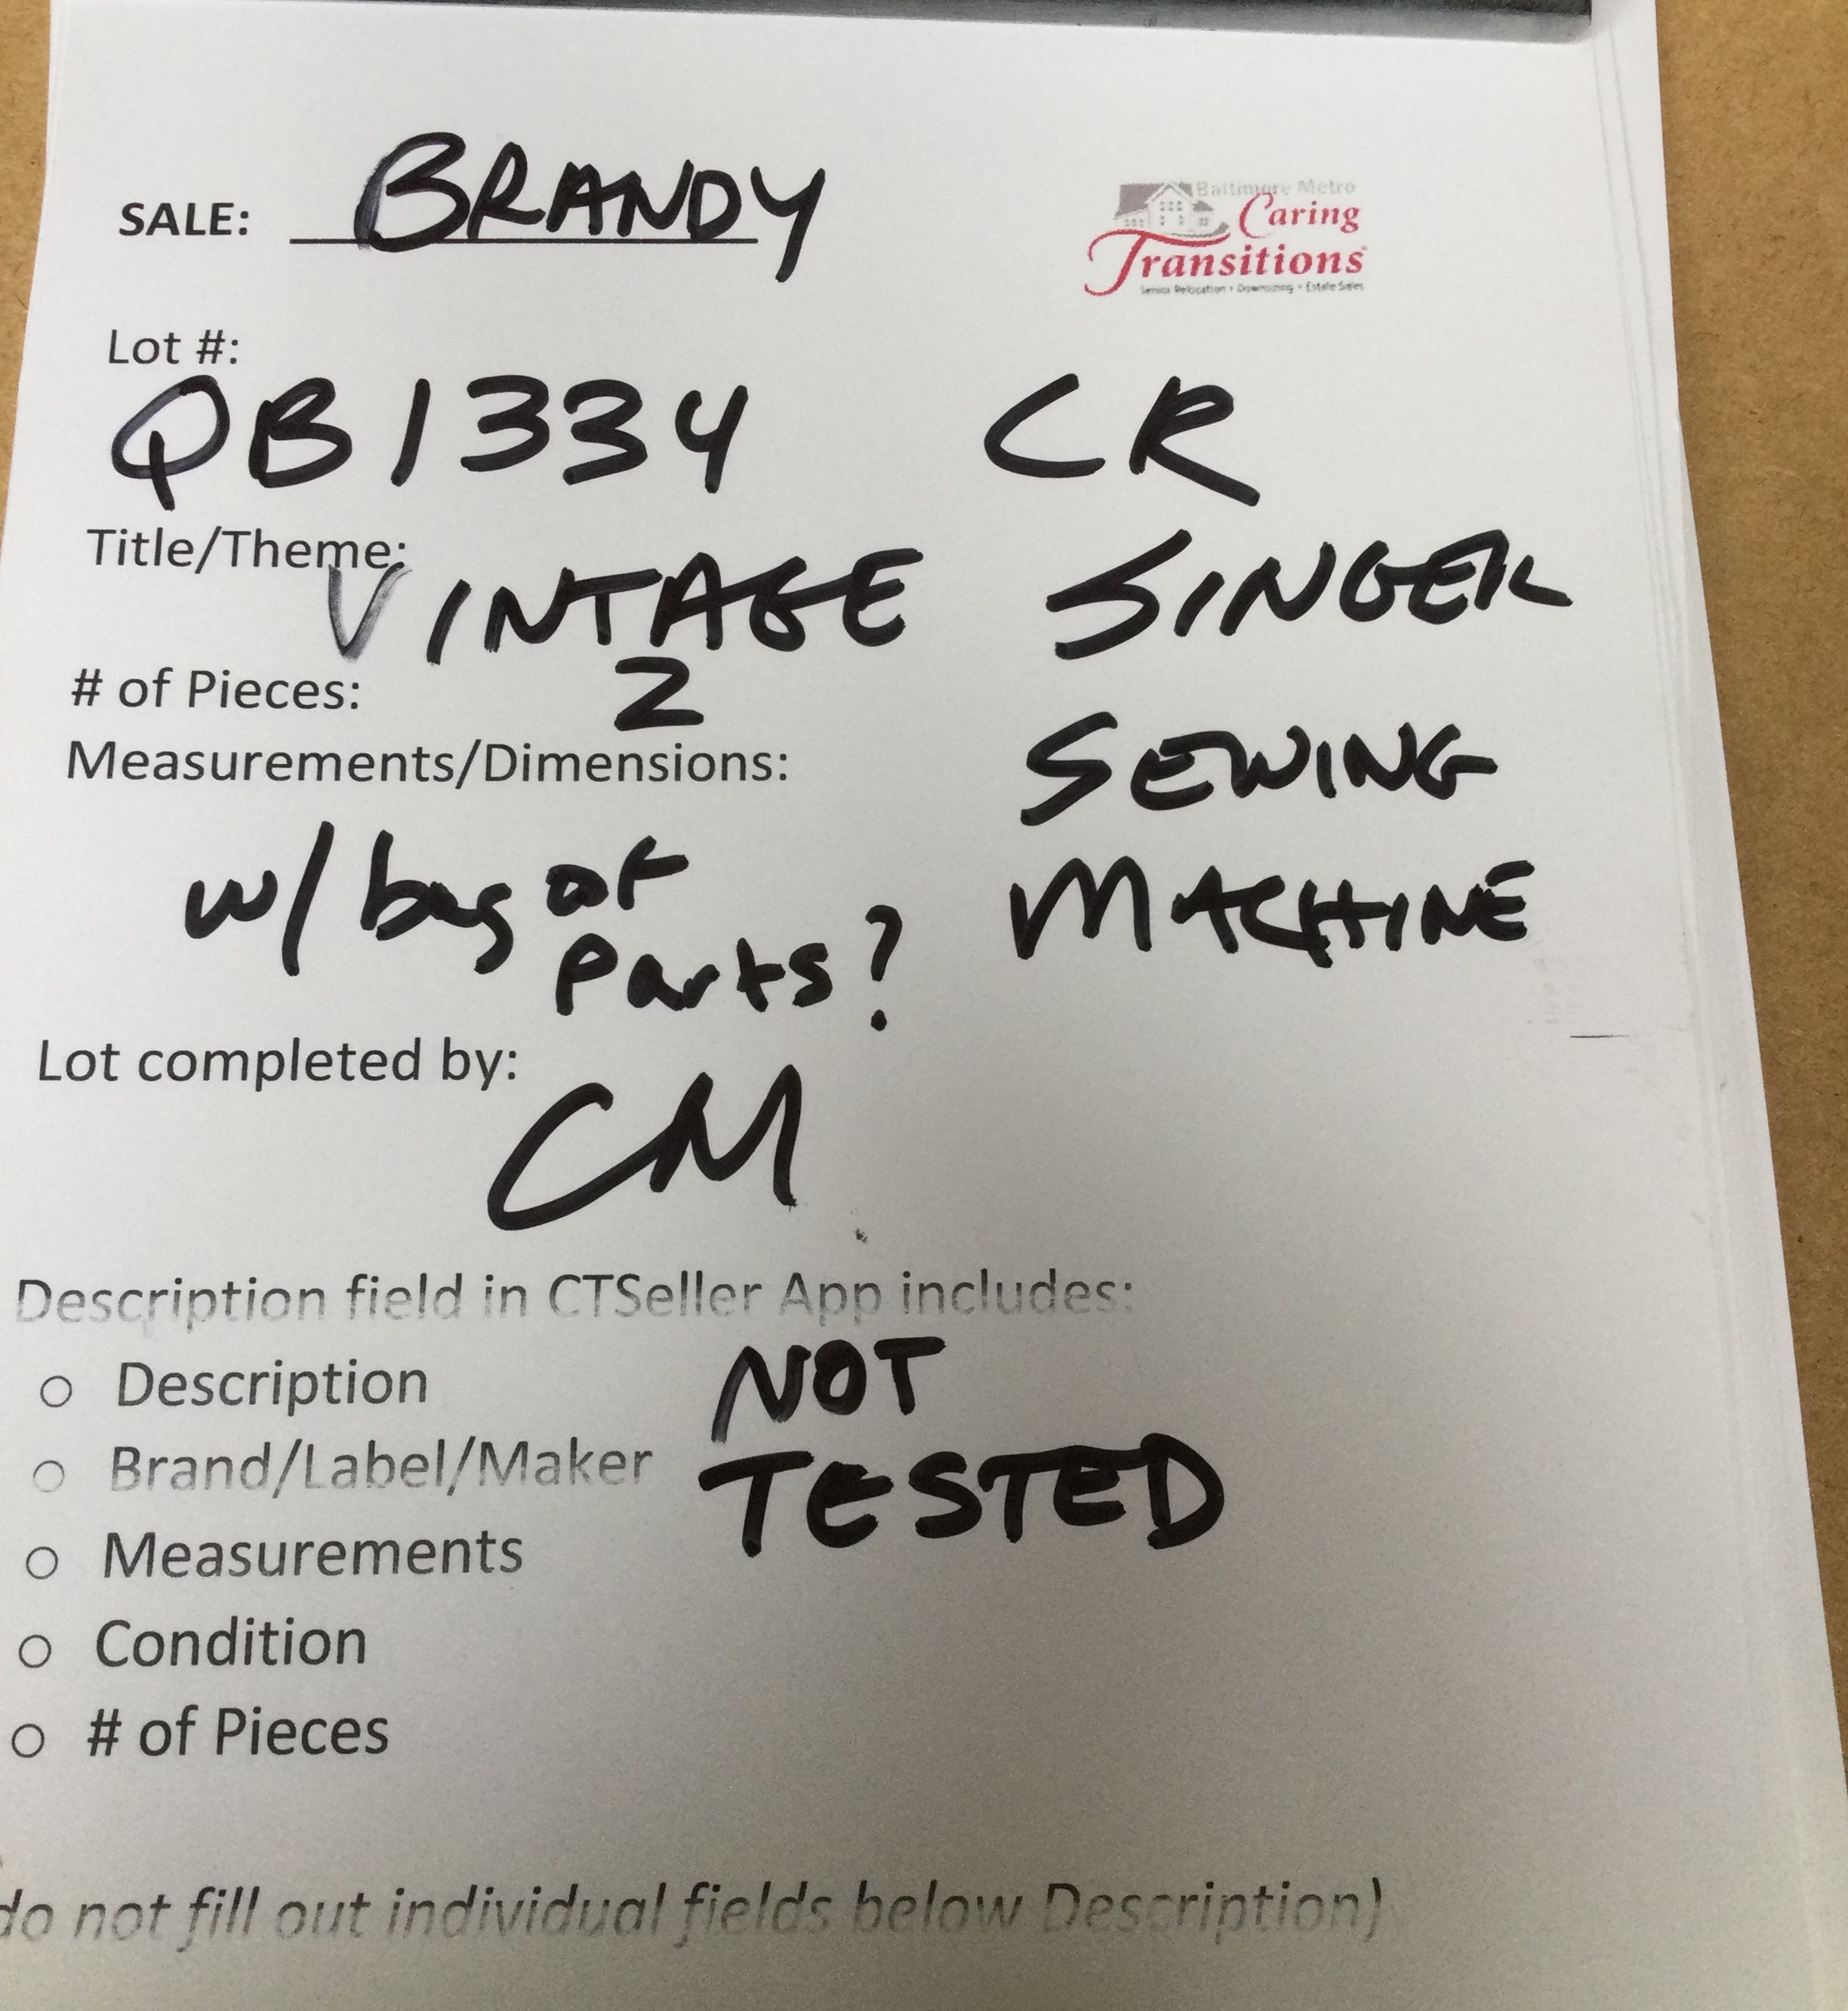 SALE: BRANDY
Baltimore Metro
Caring
Transitions
Senior Relocation • Downsizing • Estate Sales
Lot #:
QB1334 CR
Title/Theme:
VINTAGE SINGER
# of Pieces: 2
SEWING
Measurements/Dimensions:
MACHINE
w/ bag of
Parts?
Lot completed by:
CM
Description field in CTSeller App includes:
○ Description NOT
○ Brand/Label/Maker TESTED
○ Measurements
○ Condition
○ # of Pieces
do not fill out individual fields below Description)